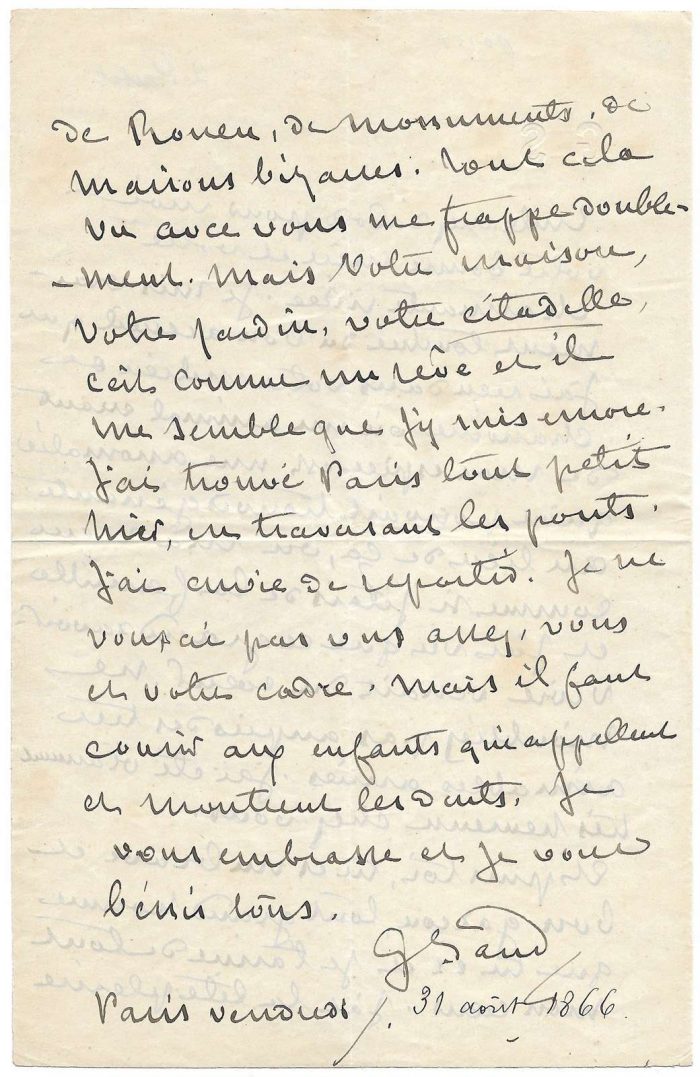 de Rouen, de monuments, de
maisons bizarres. tout cela
vu avec vous me frappe double-
-ment. Mais votre maison,
votre jardin, votre citadelle,
c'est comme un rêve et il
me semble que j'y suis encore.
J'ai trouvé Paris tout petit
hier, en traversant les ponts.
J'ai envie de repartir. Je ne
vous ai pas vus assez, vous
et votre cadre. Mais il faut
courir aux enfants qui appellent
et montrent les dents. Je
vous embrasse et je vous
bénis tous.
G Sand
Paris vendredi
31 août 1866